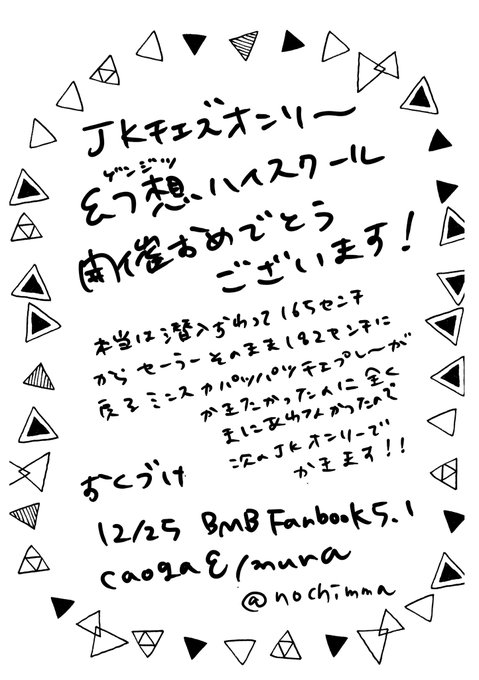 JKチェズオンリー
ゲンジツ
幻想ハイスクール
開催おめでとう
ございます!
本当は潜入おわって165センチ
からセーラーそのまま182センチに
戻るミニスカパツパツチェズレーが
かきたかったのに全く
まにあわなかったので
次のJKオンリーで
かきます!!
おくづけ
12/25 BMB Fanbook5.1
@nochimma